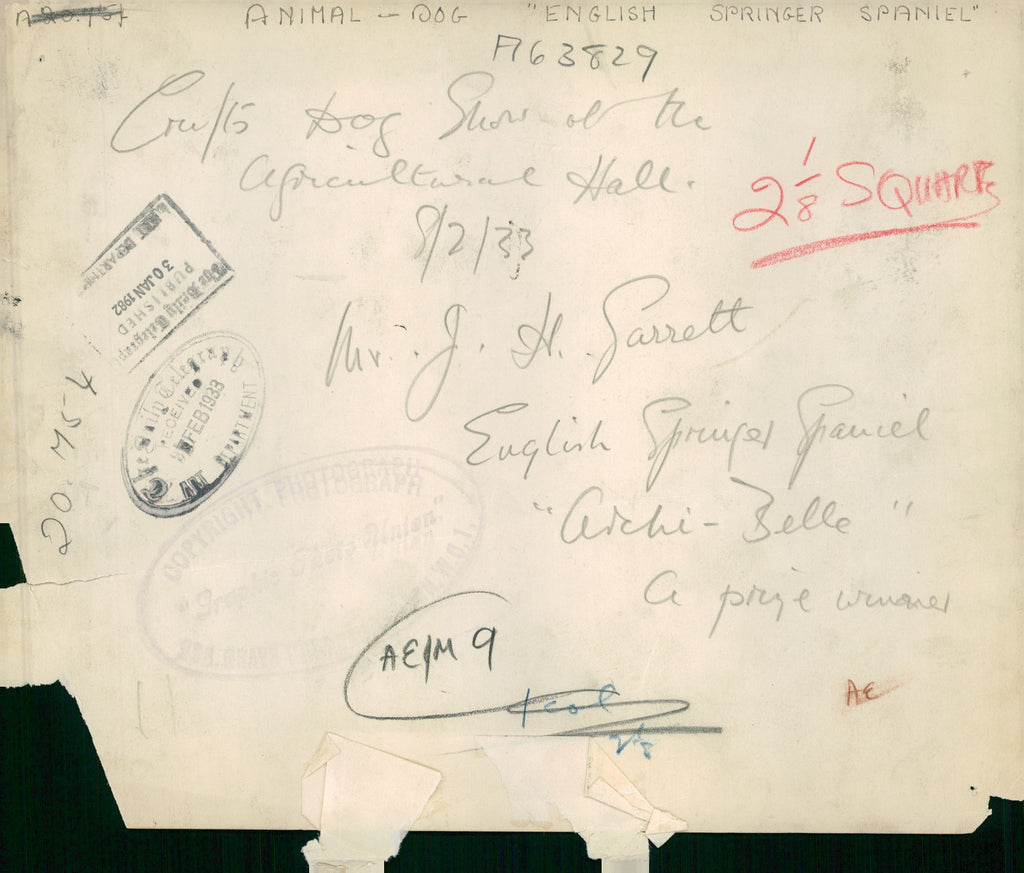 ANIMAL - DOG "ENGLISH SPRINGER SPANIEL"
A63829
Crufts Dog Show at the
Agricultural Hall.
8/2/33
2 1/8 SQUARE
Mr. J. H. Garrett
English Springer Spaniel
"Archi-Belle"
a prize winner
The Daily Telegraph
PUBLISHED
30 JAN 1982
ART DEPARTMENT
The Daily Telegraph
RECEIVED
FEB 1933
ART DEPARTMENT
20. M5-4
COPYRIGHT PHOTOGRAPH
"Graphic Photo Union"
W.C.1.
AE/M 9
1 col
AE